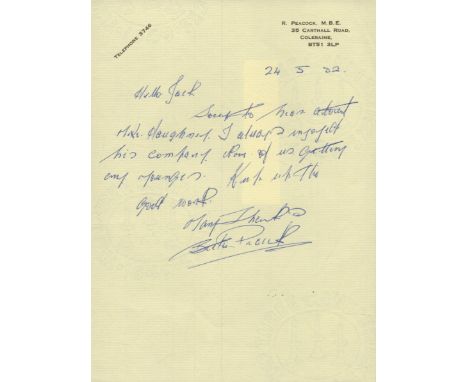 TELEPHONE 3746
R. PEACOCK, M.B.E.
35 CARTHALL ROAD,
COLERAINE,
BT51 3LP
24 5 02.
Hello Jack
Sorry to hear about
Mr. I always enjoyed
his company of us getting
any younger. Keep up the
good work.
Many Thanks
Bertie Peacock